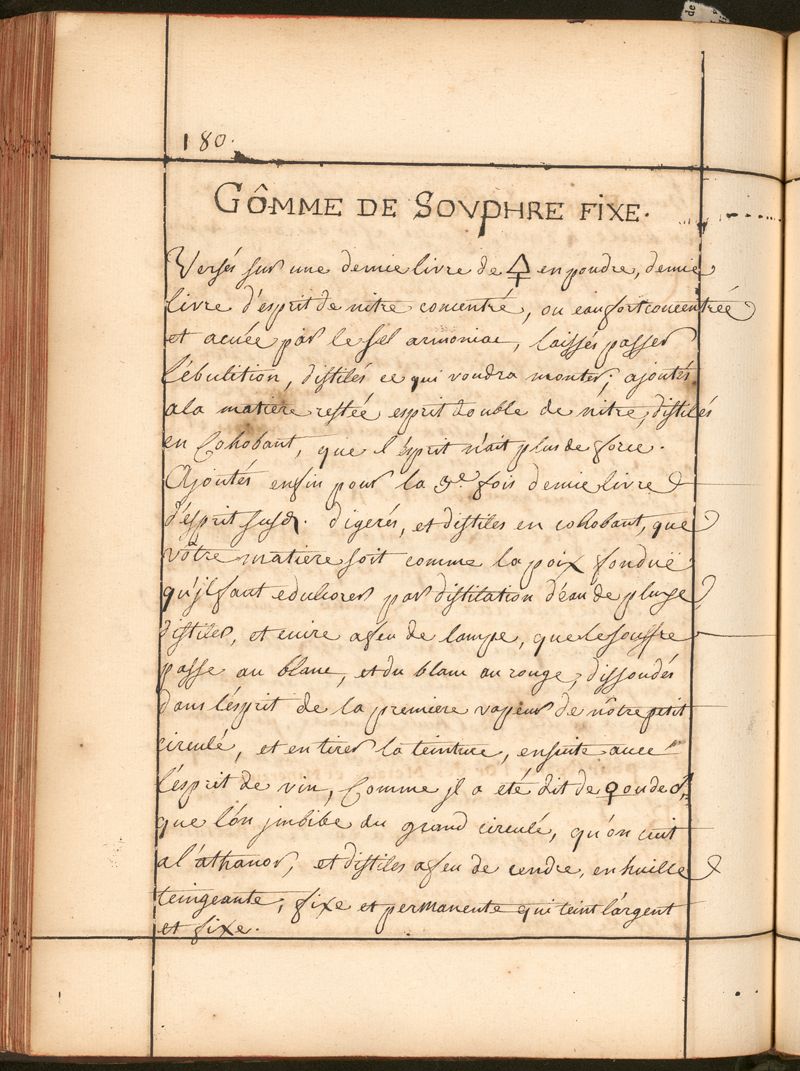 180.
GÔMME DE SOVPHRE FIXE.
Versés sur une demie livre de 🜍 en poudre, demie
livre d'esprit de nitre concentré, ou eau fort concentrée
et acuée par le sel armoniac, laissés passer
l'ébulition, distilés ce qui voudra monter; ajoutés
a la matiere restée esprit double de nitre, distilés
en Cohobant, que l'esprit n'ait plus de force.
Ajoutés enfin pour la 3e. fois demie livre
d'esprit susd. digerés, et distiles en cohobant, que
vôtre matiere soit comme la poix fonduë
qu'jl faut edulcorer par distilation d'eau de pluye
distilée, et cuire a feu de lampe, que le souffre
passe au blanc, et du blanc au rouge, dissoudés
dans l'esprit de la premiere vapeur de nôtre petit
circulé, et en tirer la teinture, ensuite avec
l'esprit de vin, Comme jl a eté dit de ♀ ou de ♂,
que l'ón jmbibe du grand circulé, qu'on cuit
a l'athanor, et distiles a feu de cendre, en huille
teingeante, fixe et permanente qui teint l'argent
et fixe.